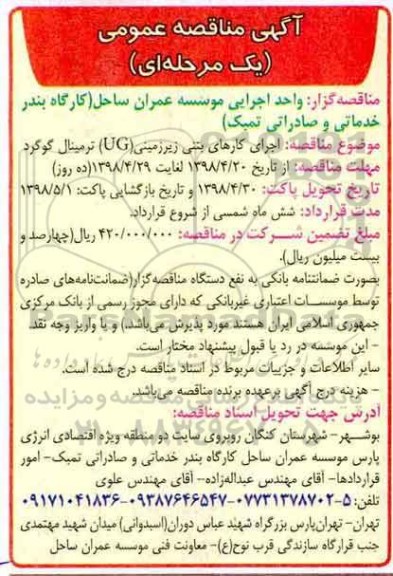 آگهی مناقصه عمومی
(یک مرحله‌ای)
مناقصه‌گزار: واحد اجرایی موسسه عمران ساحل(کارگاه بندر
خدماتی و صادراتی تمبک)
موضوع مناقصه: اجرای کارهای بتنی زیرزمینی(UG) ترمینال گوگرد
مهلت مناقصه: از تاریخ ۱۳۹۸/۴/۲۰ لغایت ۱۳۹۸/۴/۲۹(ده روز)
تاریخ تحویل پاکت: ۱۳۹۸/۴/۳۰ و تاریخ بازگشایی پاکت: ۱۳۹۸/۵/۱
مدت قرارداد: شش ماه شمسی از شروع قرارداد.
مبلغ تضمین شرکت در مناقصه: ۴۲۰/۰۰۰/۰۰۰ ریال(چهارصد و
بیست میلیون ریال).
بصورت ضمانتنامه بانکی به نفع دستگاه مناقصه‌گزار(ضمانت‌نامه‌های صادره
توسط موسسات اعتباری غیربانکی که دارای مجوز رسمی از بانک مرکزی
جمهوری اسلامی ایران هستند مورد پذیرش می‌باشد.) و یا واریز وجه نقد
- این موسسه در رد یا قبول پیشنهاد مختار است.
سایر اطلاعات و جزییات مربوط در اسناد مناقصه درج شده است.
- هزینه درج آگهی برعهده برنده مناقصه می‌باشد.
آدرس جهت تحویل اسناد مناقصه:
بوشهر- شهرستان کنگان روبروی سایت دو منطقه ویژه اقتصادی انرژی
پارس موسسه عمران ساحل کارگاه بندر خدماتی و صادراتی تمبک- امور
قراردادها- آقای مهندس عبداله‌زاده- آقای مهندس علوی
تلفن: ۵-۰۷۷۳۱۳۷۸۷۰۲-۰۹۳۸۷۶۴۶۵۴۷-۰۹۱۷۱۰۴۱۸۳۶
تهران- تهران‌پارس بزرگراه شهید عباس دوران(اسبدوانی) میدان شهید مهتمدی
جنب قرارگاه سازندگی قرب نوح(ع)- معاونت فنی موسسه عمران ساحل